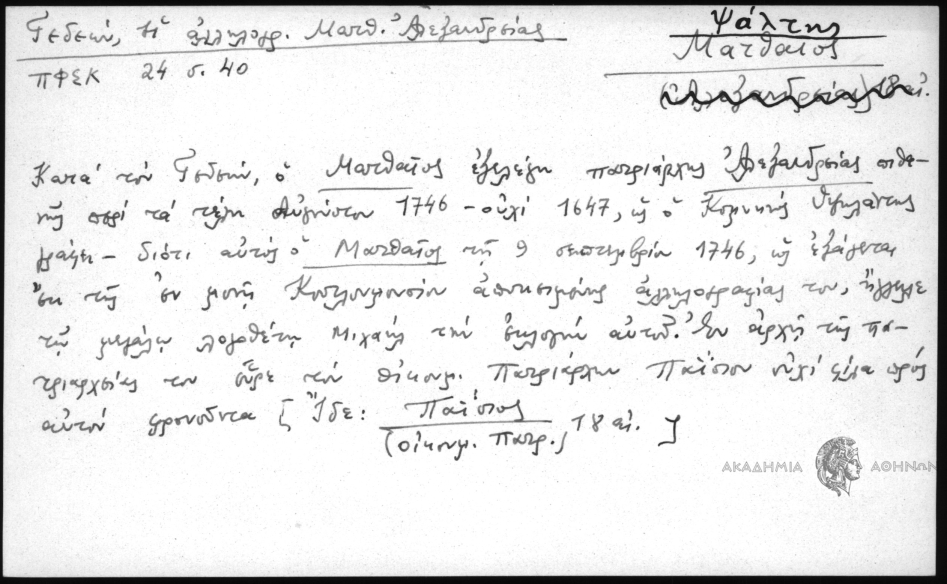 Γεδεών, Ἡ ἀλληλογρ. Ματθ. Ἀλεξανδρείας
ΠΦΕΚ 24 σ. 40
Ψάλτης
Ματθαῖος
(Ἀλεξανδρείας) 18 αἰ.
Κατά τόν Γεδεών, ὁ Ματθαῖος ἐξελέγη πατριάρχης Ἀλεξανδρείας πιθα-
νῶς περί τά τέλη Αὐγούστου 1746 – οὐχί 1647, ὡς ὁ Κομνηνός Ὑψηλάντης
γράφει – διότι αὐτός ὁ Ματθαῖος τῇ 9 σεπτεμβρίου 1746, ὡς ἐξάγεται
ἐκ τῆς ἐν μονῇ Κουτλουμουσίου ἀποκειμένης ἀλληλογραφίας του, ἤγγειλε
τῷ μεγάλῳ λογοθέτῃ Μιχαήλ τήν ἐκλογήν αὐτοῦ. Ἐν ἀρχῇ τῆς πα-
τριαρχείας του εὗρε τόν οἰκουμ. Πατριάρχην Παΐσιον οὐχί φίλα πρός
αὐτόν φρονοῦντα [ Ἴδε: Παΐσιος
(οἰκουμ. πατρ.) 18 αἰ. ]
ΑΚΑΔΗΜΙΑ ΑΘΗΝΩΝ